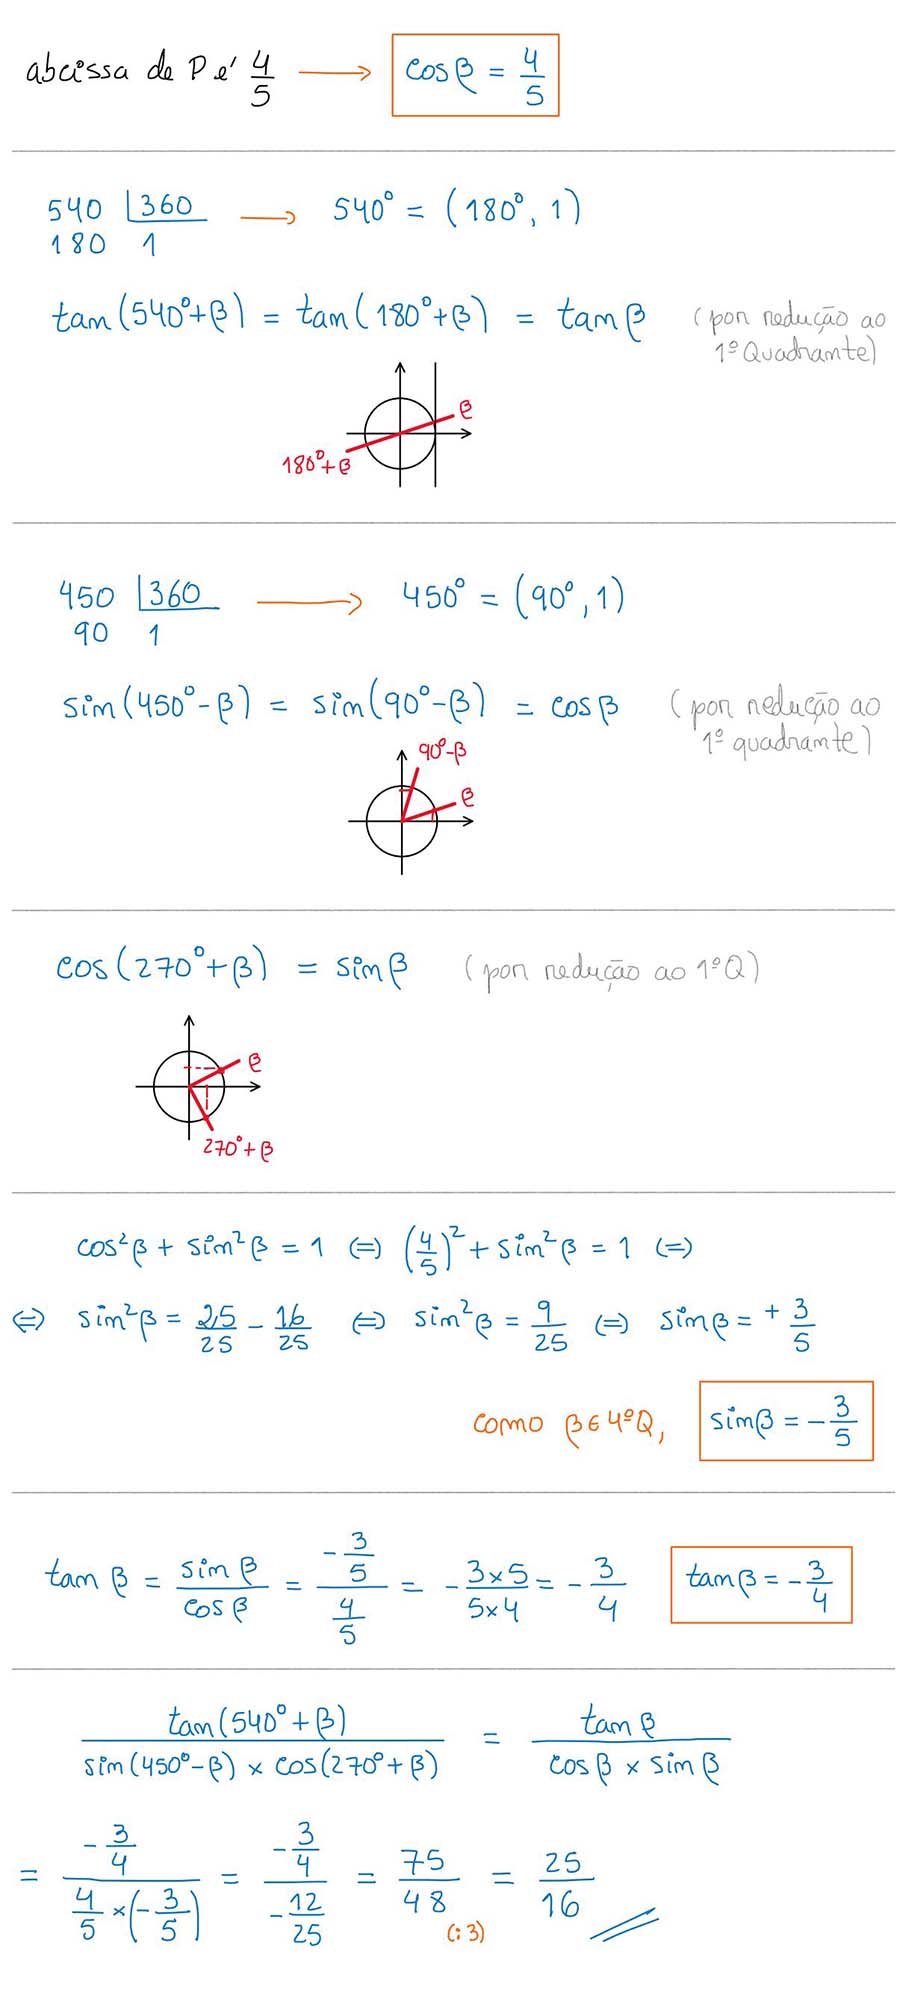 abcissa de P é 4/5 → cos β = 4/5
540 |360 → 540° = (180°, 1)
180 1
tan(540°+β) = tan(180°+β) = tan β (por redução ao
1º Quadrante)
β
180°+β
450 |360 → 450° = (90°, 1)
90 1
sin(450°-β) = sin(90°-β) = cos β (por redução ao
1º quadrante)
90°-β
β
cos(270°+β) = sin β (por redução ao 1º Q)
β
270°+β
cos²β + sin²β = 1 ⇔ (4/5)² + sin²β = 1 ⇔
⇔ sin²β = 25/25 - 16/25 ⇔ sin²β = 9/25 ⇔ sin β = + 3/5
Como β ∈ 4ºQ, sin β = - 3/5
tan β = sin β / cos β = (- 3/5) / (4/5) = - 3×5 / 5×4 = - 3/4 tan β = - 3/4
tan(540° + β) / sin(450°-β) × cos(270°+β) = tan β / cos β × sin β
= (- 3/4) / (4/5 × (- 3/5)) = (- 3/4) / (- 12/25) = 75/48 = 25/16
(:3)